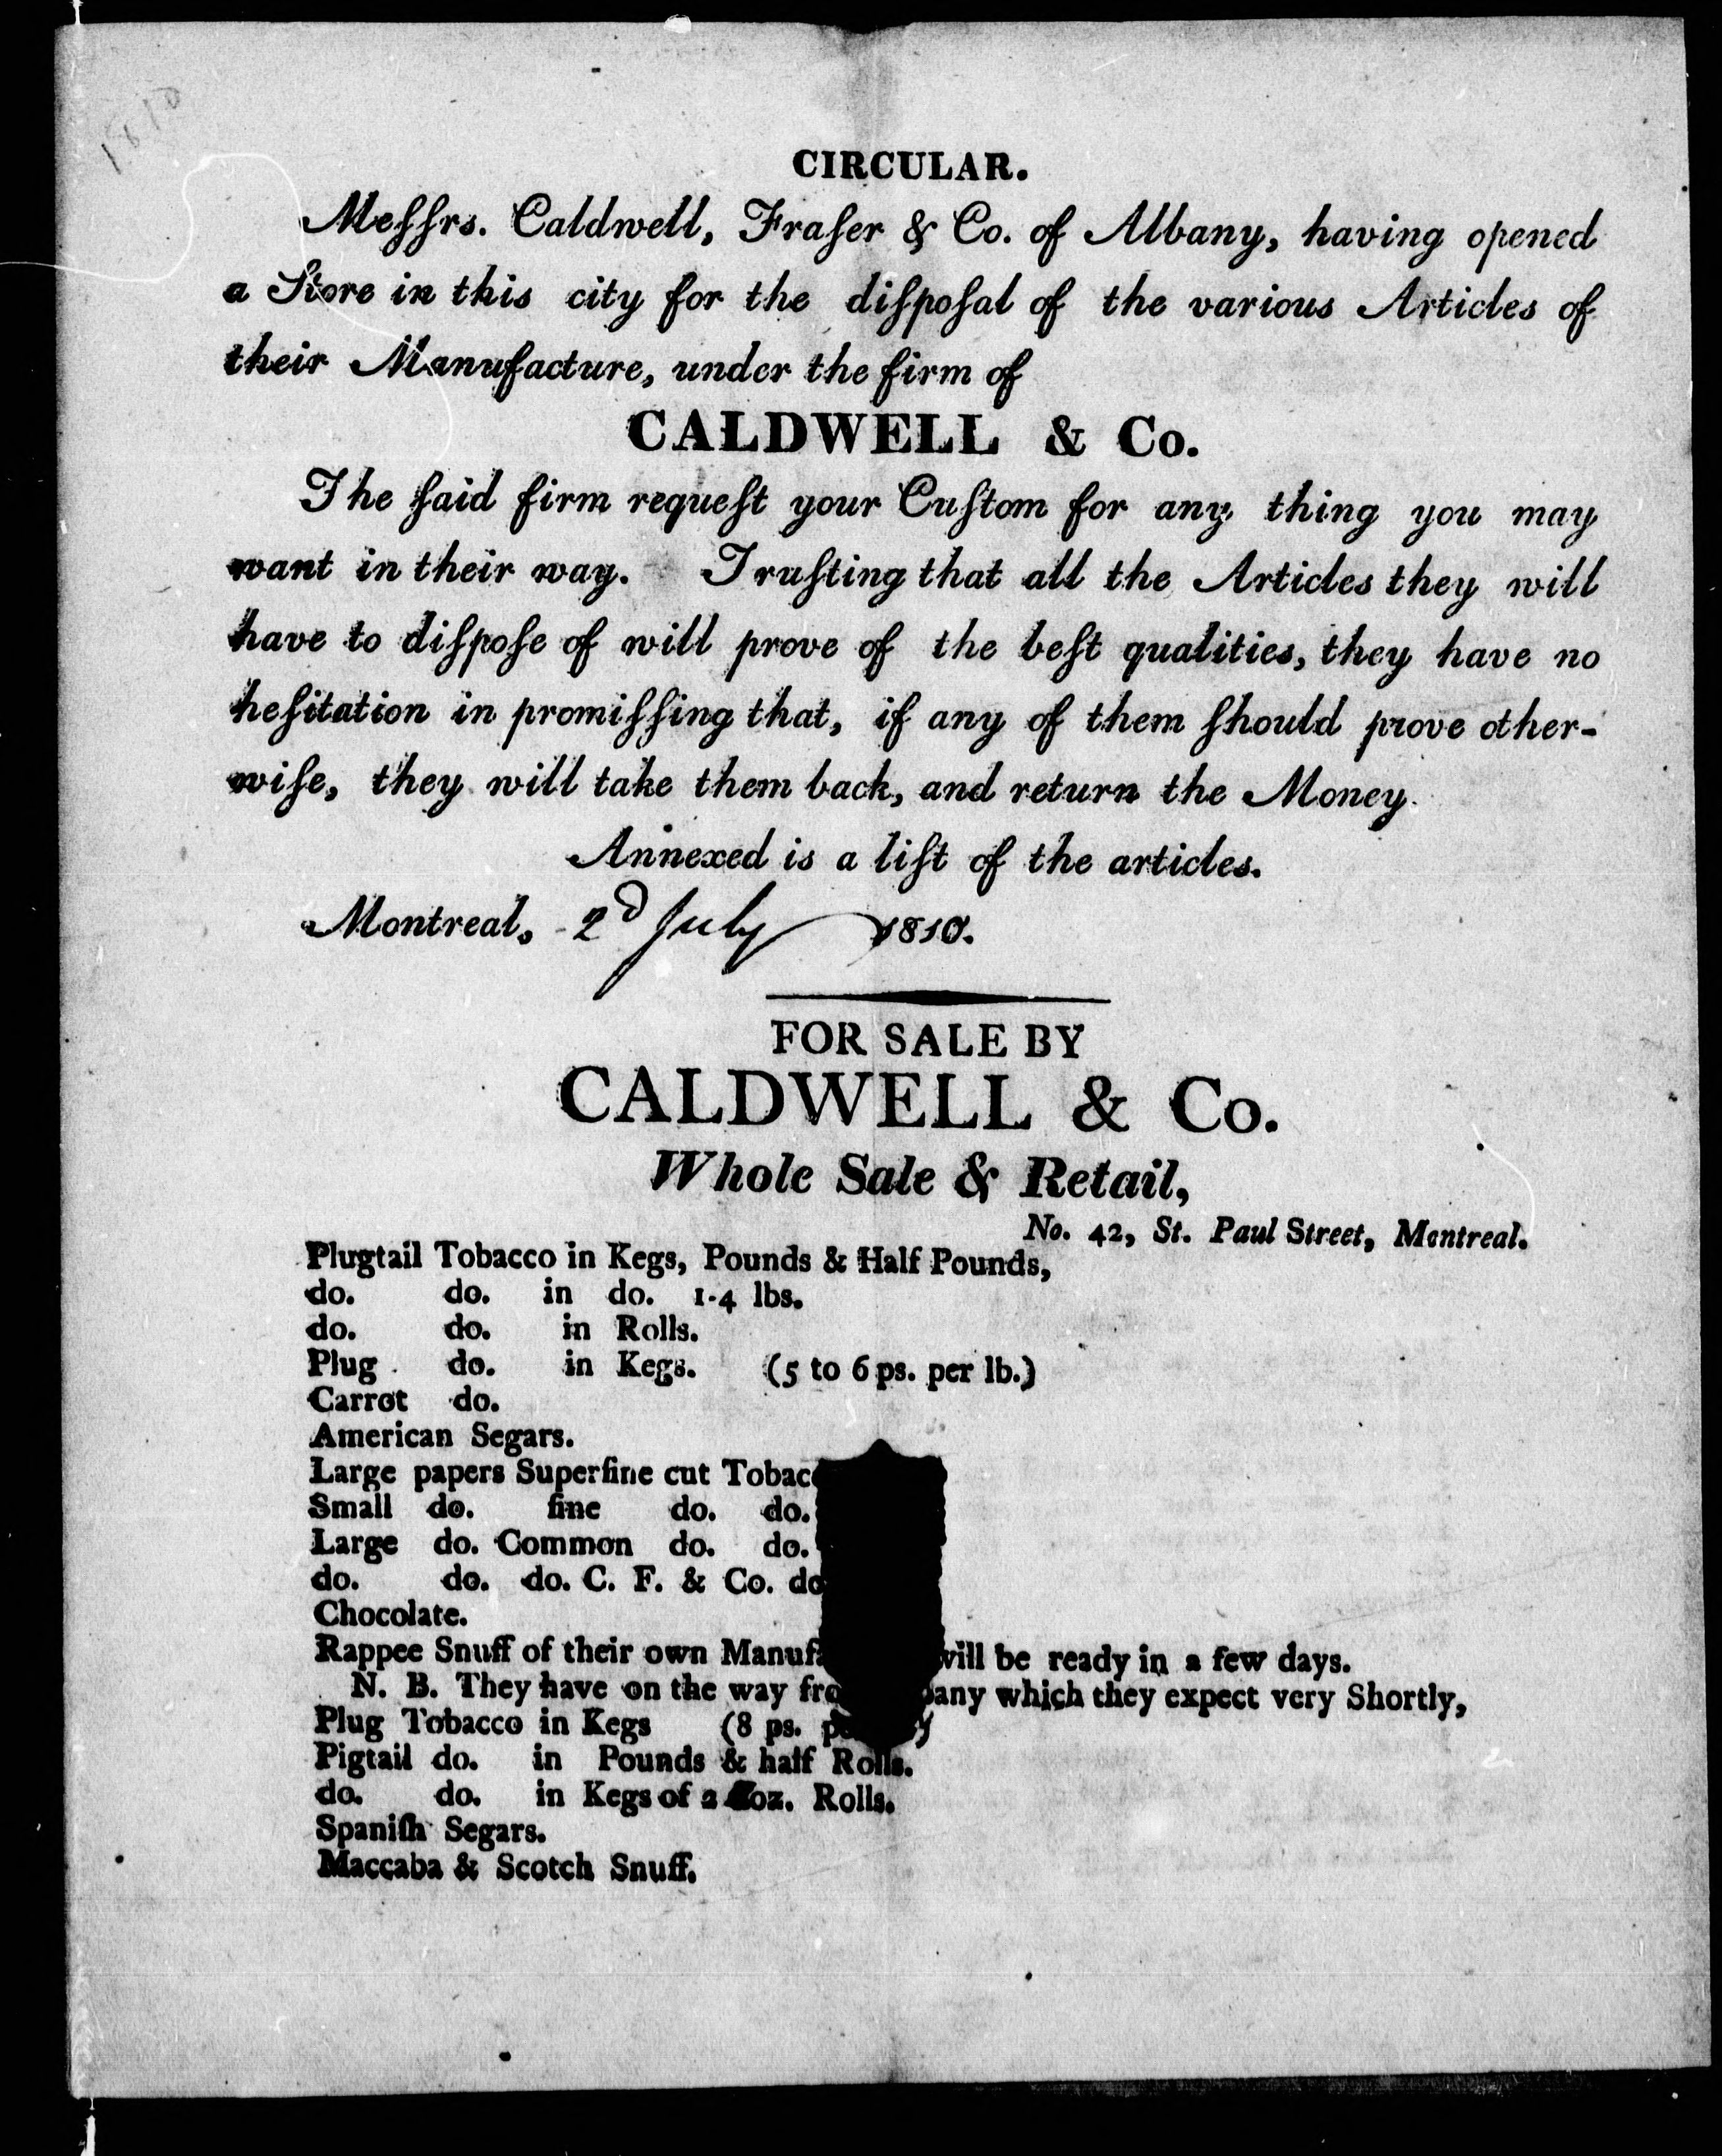 1810
CIRCULAR.
Meſſrs. Caldwell, Fraſer & Co. of Albany, having opened
a Store in this city for the diſpoſal of the various Articles of
their Manufacture, under the firm of
CALDWELL & Co.
The ſaid firm requeſt your Cuſtom for any thing you may
want in their way. Truſting that all the Articles they will
have to diſpoſe of will prove of the beſt qualities, they have no
heſitation in promiſſing that, if any of them ſhould prove other-
wiſe, they will take them back, and return the Money.
Annexed is a liſt of the articles.
Montreal, 2d July 1810.
FOR SALE BY
CALDWELL & Co.
Whole Sale & Retail,
No. 42, St. Paul Street, Montreal.
Plugtail Tobacco in Kegs, Pounds & Half Pounds,
do. do. in do. 1-4 lbs.
do. do. in Rolls.
Plug do. in Kegs. (5 to 6 ps. per lb.)
Carrot do.
American Segars.
Large papers Superfine cut Tobac
Small do. fine do. do.
Large do. Common do. do.
do. do. do. C. F. & Co. do
Chocolate.
Rappee Snuff of their own Manufa will be ready in a few days.
N. B. They have on the way fro bany which they expect very Shortly,
Plug Tobacco in Kegs (8 ps.
Pigtail do. in Pounds & half Rolls.
do. do. in Kegs of 2 oz. Rolls.
Spaniſh Segars.
Maccaba & Scotch Snuff.